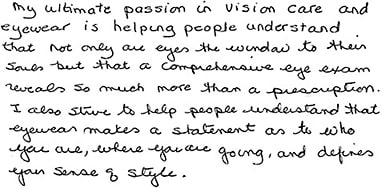 My ultimate passion in vision care and
eyewear is helping people understand
that not only are eyes the window to their
souls but that a comprehensive eye exam
reveals so much more than a prescription.
I also strive to help people understand that
eyewear makes a statement as to who
you are, where you are going, and defines
your sense of style.